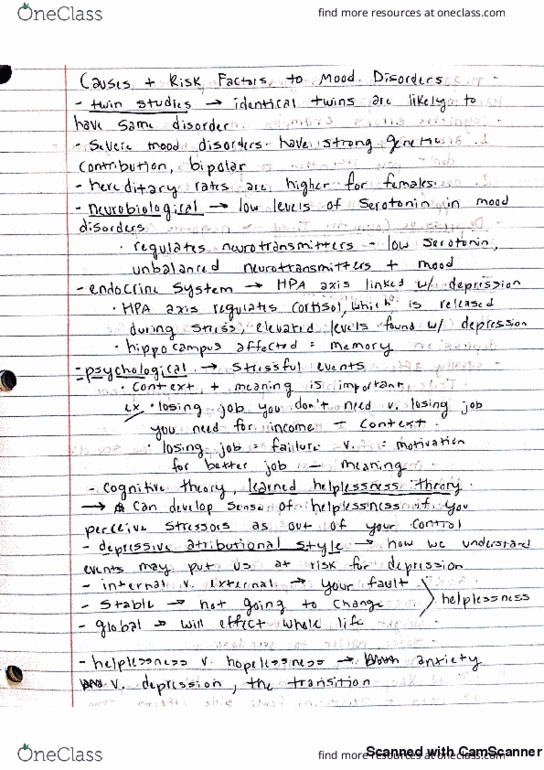 OneClass
find more resources at oneclass.com
Causes + Risk Factors to Mood Disorders
- twin studies → identical twins are likely to
have same disorder
- Severe mood disorders have strong genetic
contribution, bipolar
- hereditary rates are higher for females
- neurobiological → low levels of Serotonin in mood
disorders
· regulates neurotransmitters - low serotonin,
unbalanced neurotransmitters + mood
- endocrine system → HPA axis linked w/ depression
· HPA axis regulates cortisol, which is released
during stress, elevated levels found w/ depression
· hippocampus affected = memory
- psychological → stressful events
· Context + meaning is important
ex · losing job you don't need v. losing job
you need for income - context
· losing job = failure v. = motivation
for better job - meaning
- cognitive theory, learned helplessness theory
→ can develop sense of helplessness if you
perceive stressors as out of your control
- depressive atributional style → how we understand
events may put us at risk for depression
- internal v. external → your fault
- stable → not going to change > helplessness
- global → will effect whole life
- helplessness v. hopelessness → anxiety
v. depression, the transition
Scanned with CamScanner
OneClass
find more resources at oneclass.com